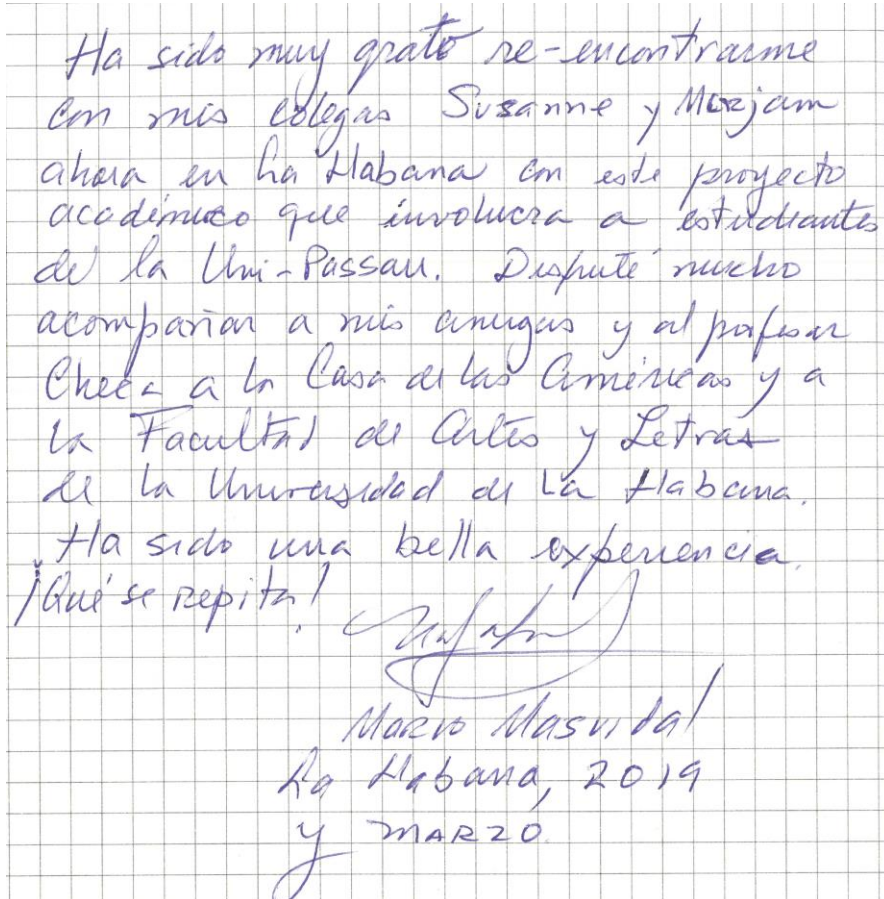 Ha sido muy grato re-encontrarme
con mis colegas Susanne y Mirjam
ahora en La Habana con este proyecto
académico que involucra a estudiantes
de la Uni-Passau. Disfruté mucho
acompañar a mis amigas y al profesor
Checa a la Casa de las Américas y a
la Facultad de Artes y Letras
de la Universidad de La Habana.
Ha sido una bella experiencia.
¡Qué se repita!
Mario Masvidal
La Habana, 2019
y MARZO.